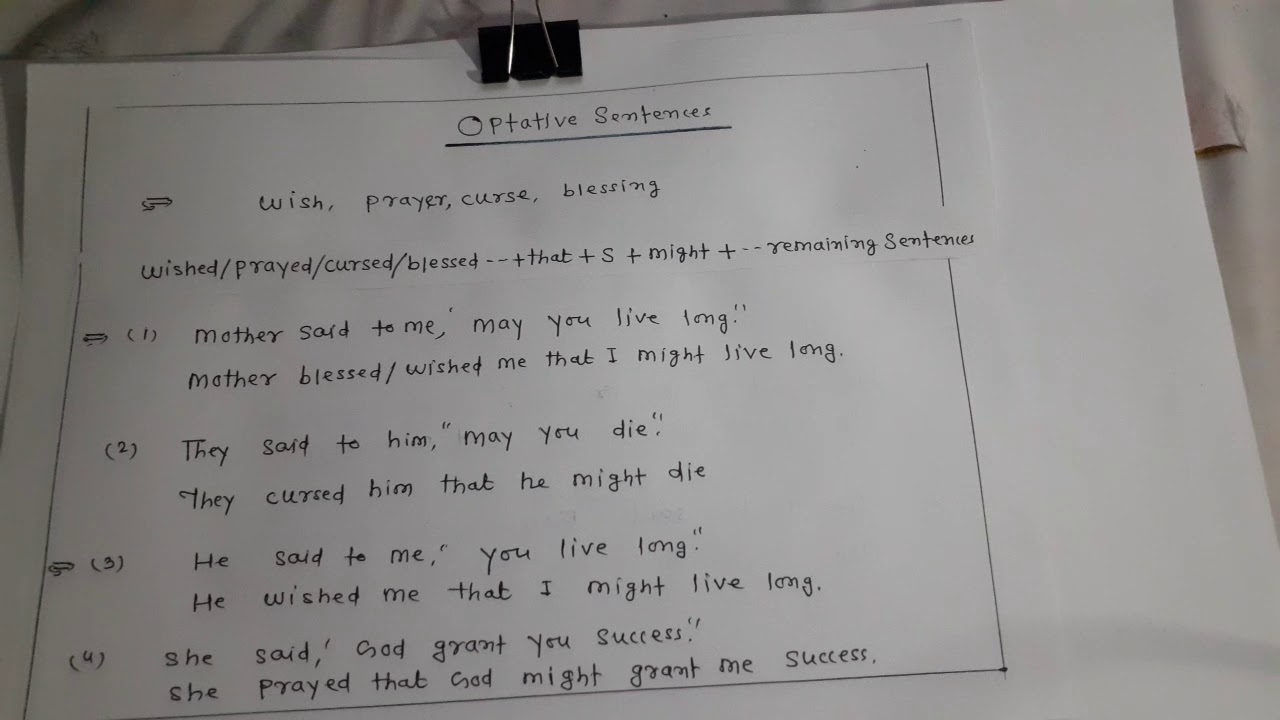 Optative Sentences
⇒ Wish, prayer, curse, blessing
wished/prayed/cursed/blessed --+that + S + might + -- remaining Sentences
⇒ (1) Mother said to me,' may you live long."
Mother blessed/wished me that I might live long.
(2) They said to him," may you die".
They cursed him that he might die
⇒ (3) He said to me," you live long."
He wished me that I might live long.
(4) she said,' God grant you success."
she prayed that God might grant me success.